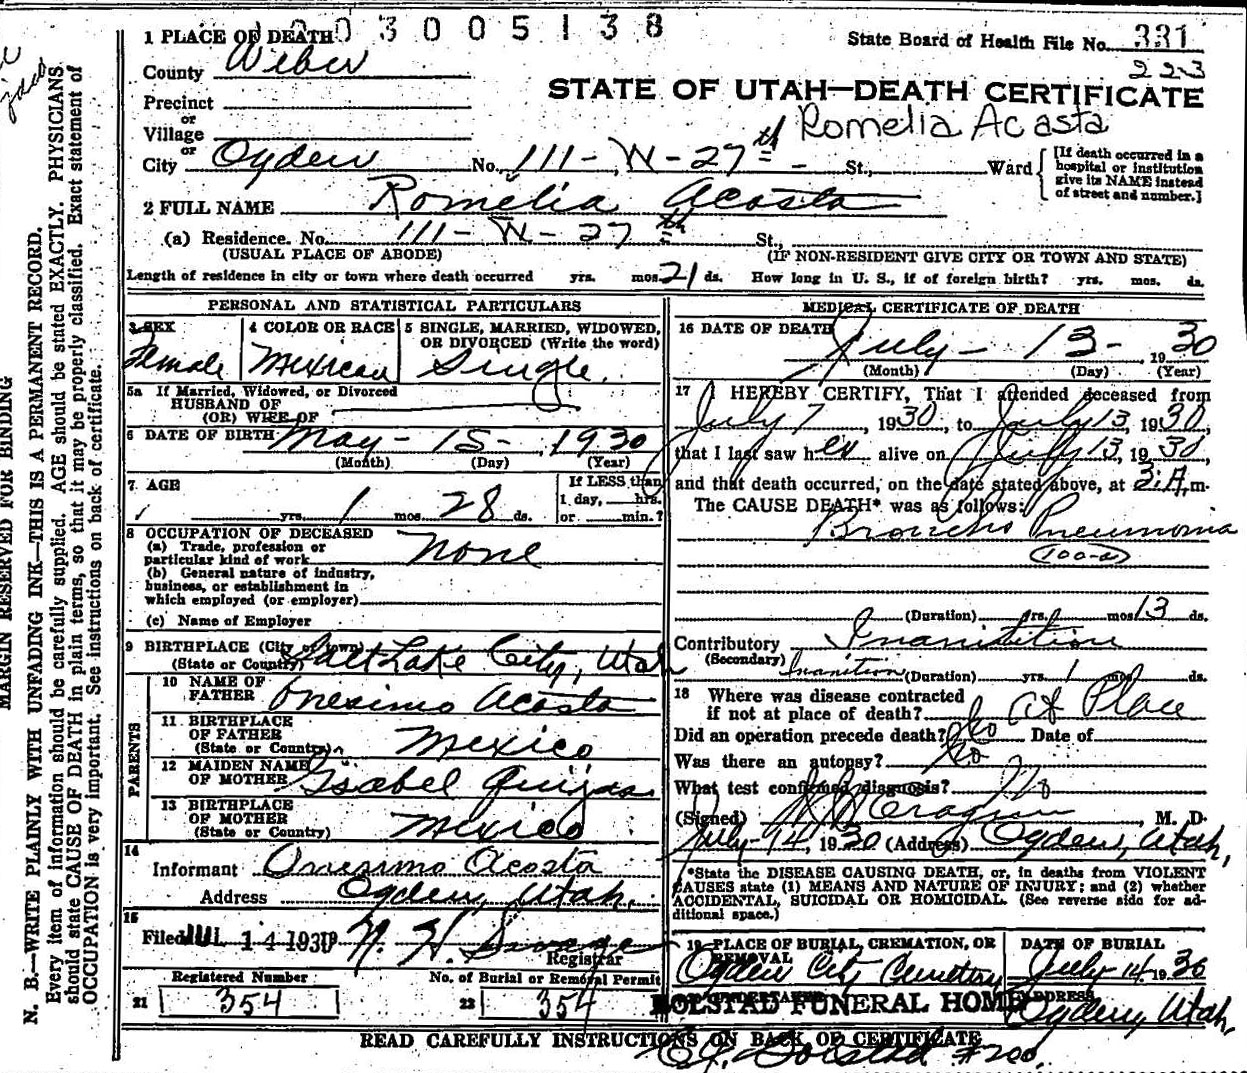 003005138
1 PLACE OF DEATH
State Board of Health File No. 331
County Weber
223
STATE OF UTAH—DEATH CERTIFICATE
Precinct
or
Village
Romelia Acasta
or
City Ogden No. 111-W-27th St., Ward
[If death occurred in a hospital or institution give its NAME instead of street and number.]
2 FULL NAME Romelia Acosta
(a) Residence. No. 111-W-27th St.,
(USUAL PLACE OF ABODE) (IF NON-RESIDENT GIVE CITY OR TOWN AND STATE)
Length of residence in city or town where death occurred yrs. mos. 21 ds. How long in U. S., if of foreign birth? yrs. mos. ds.
PERSONAL AND STATISTICAL PARTICULARS
3 SEX Female
4 COLOR OR RACE Mexican
5 SINGLE, MARRIED, WIDOWED, OR DIVORCED (Write the word) Single.
5a If Married, Widowed, or Divorced
HUSBAND OF
(OR) WIFE OF
6 DATE OF BIRTH May-15-1930
(Month) (Day) (Year)
7 AGE yrs. 1 mos. 28 ds.
If LESS than 1 day, hrs. or min.?
8 OCCUPATION OF DECEASED
(a) Trade, profession or particular kind of work None
(b) General nature of industry, business, or establishment in which employed (or employer)
(c) Name of Employer
9 BIRTHPLACE (City or town) (State or Country) Salt Lake City, Utah
PARENTS
10 NAME OF FATHER Onesimo Acosta
11 BIRTHPLACE OF FATHER (State or Country) Mexico
12 MAIDEN NAME OF MOTHER Isabel
13 BIRTHPLACE OF MOTHER (State or Country) Mexico
14
Informant Onesimo Acosta
Address Ogden, Utah.
15
Filed JUL 14 1930 Registrar
Registered Number
21 354
No. of Burial or Removal Permit
22 354
MEDICAL CERTIFICATE OF DEATH
16 DATE OF DEATH July-13-1930
(Month) (Day) (Year)
17 I HEREBY CERTIFY, That I attended deceased from
July 7, 1930, to July 13, 1930,
that I last saw her alive on July 13, 1930,
and that death occurred, on the date stated above, at 3:A.m.
The CAUSE DEATH* was as follows:
Broncho Pneumonia
100-a
(Duration) yrs. mos. 13 ds.
Contributory Inanitution
(Secondary) Inanition (Duration) yrs. 1 mos. ds.
18 Where was disease contracted
if not at place of death? At Place
Did an operation precede death? No Date of
Was there an autopsy? No
What test confirmed diagnosis? No
(Signed) , M. D.
July-14, 1930 (Address) Ogden, Utah,
*State the DISEASE CAUSING DEATH, or, in deaths from VIOLENT
CAUSES state (1) MEANS AND NATURE OF INJURY; and (2) whether
ACCIDENTAL, SUICIDAL OR HOMICIDAL. (See reverse side for ad-
ditional space.)
19 PLACE OF BURIAL, CREMATION, OR REMOVAL Ogden City Cemetery
DATE OF BURIAL July-14-1930
UNDERTAKER
FUNERAL HOME
ADDRESS Ogden, Utah,
READ CAREFULLY INSTRUCTIONS ON BACK OF CERTIFICATE
#200.
MARGIN RESERVED FOR BINDING
N. B.—WRITE PLAINLY WITH UNFADING INK—THIS IS A PERMANENT RECORD.
Every item of information should be carefully supplied. AGE should be stated EXACTLY. PHYSICIANS
should state CAUSE OF DEATH in plain terms, so that it may be properly classified. Exact statement of
OCCUPATION is very important. See instructions on back of certificate.